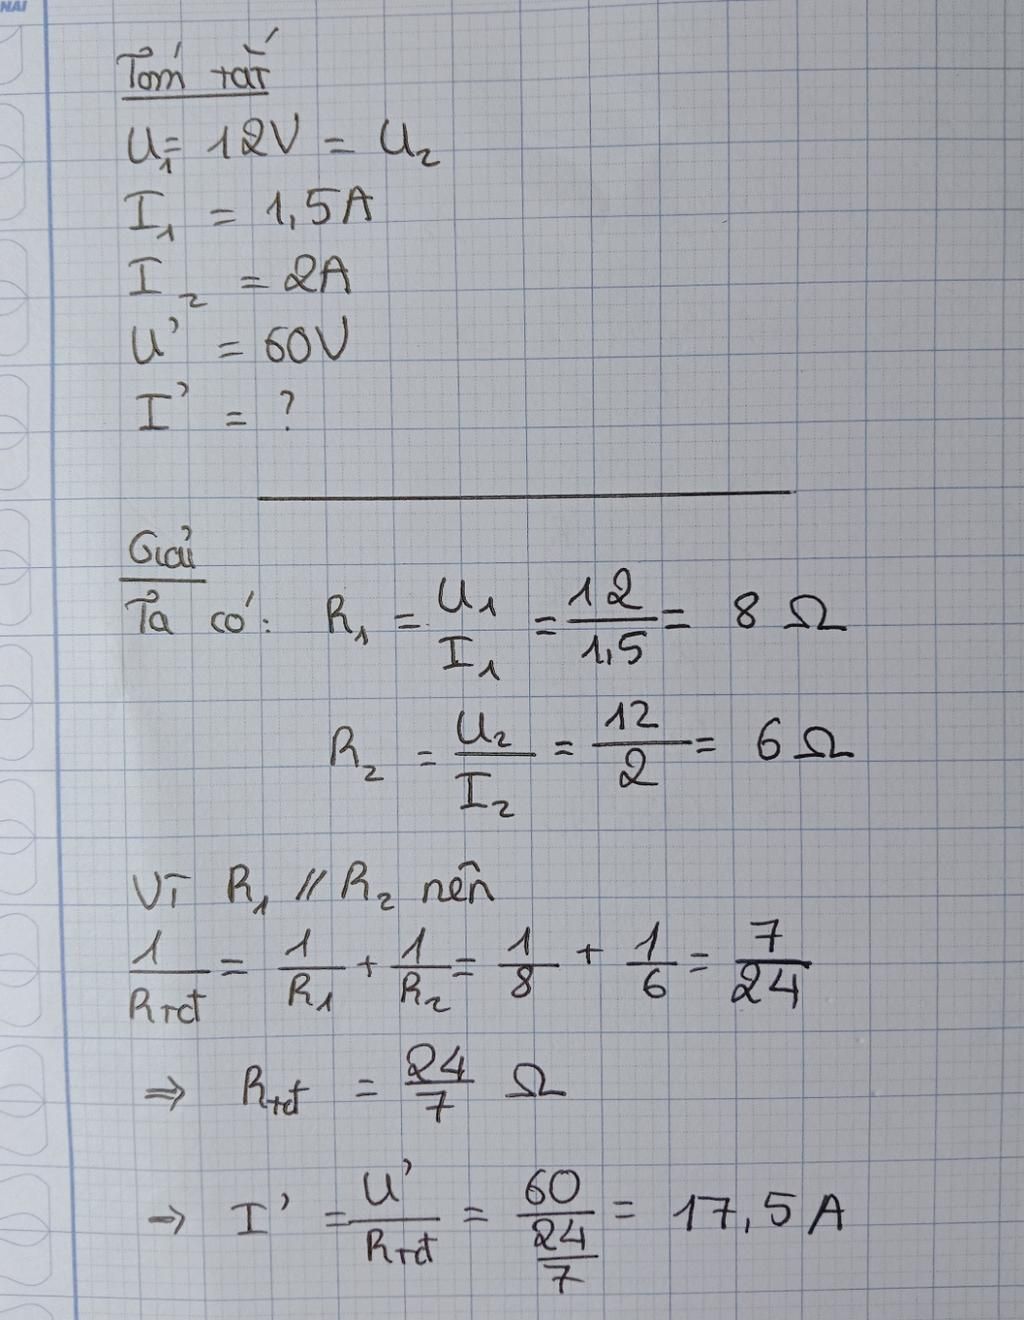 NAI
Tóm tắt
U₁ = 12V = U₂
I₁ = 1,5A
I₂ = 2A
U' = 60V
I' = ?
Giải
Ta có: R₁ = U₁/I₁ = 12/1,5 = 8 Ω
R₂ = U₂/I₂ = 12/2 = 6 Ω
Vì R₁ // R₂ nên
1/Rtđ = 1/R₁ + 1/R₂ = 1/8 + 1/6 = 7/24
⇒ Rtđ = 24/7 Ω
→ I' = U'/Rtđ = 60/(24/7) = 17,5 A